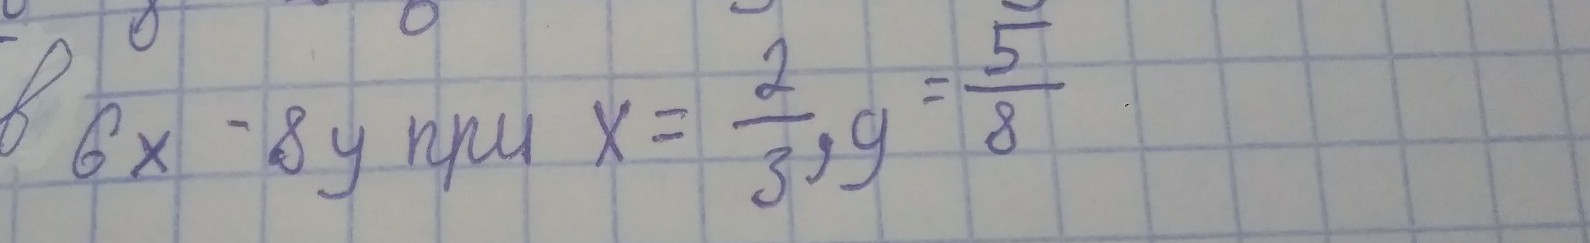 в 6x - 8y при x = 2/3, y = 5/8